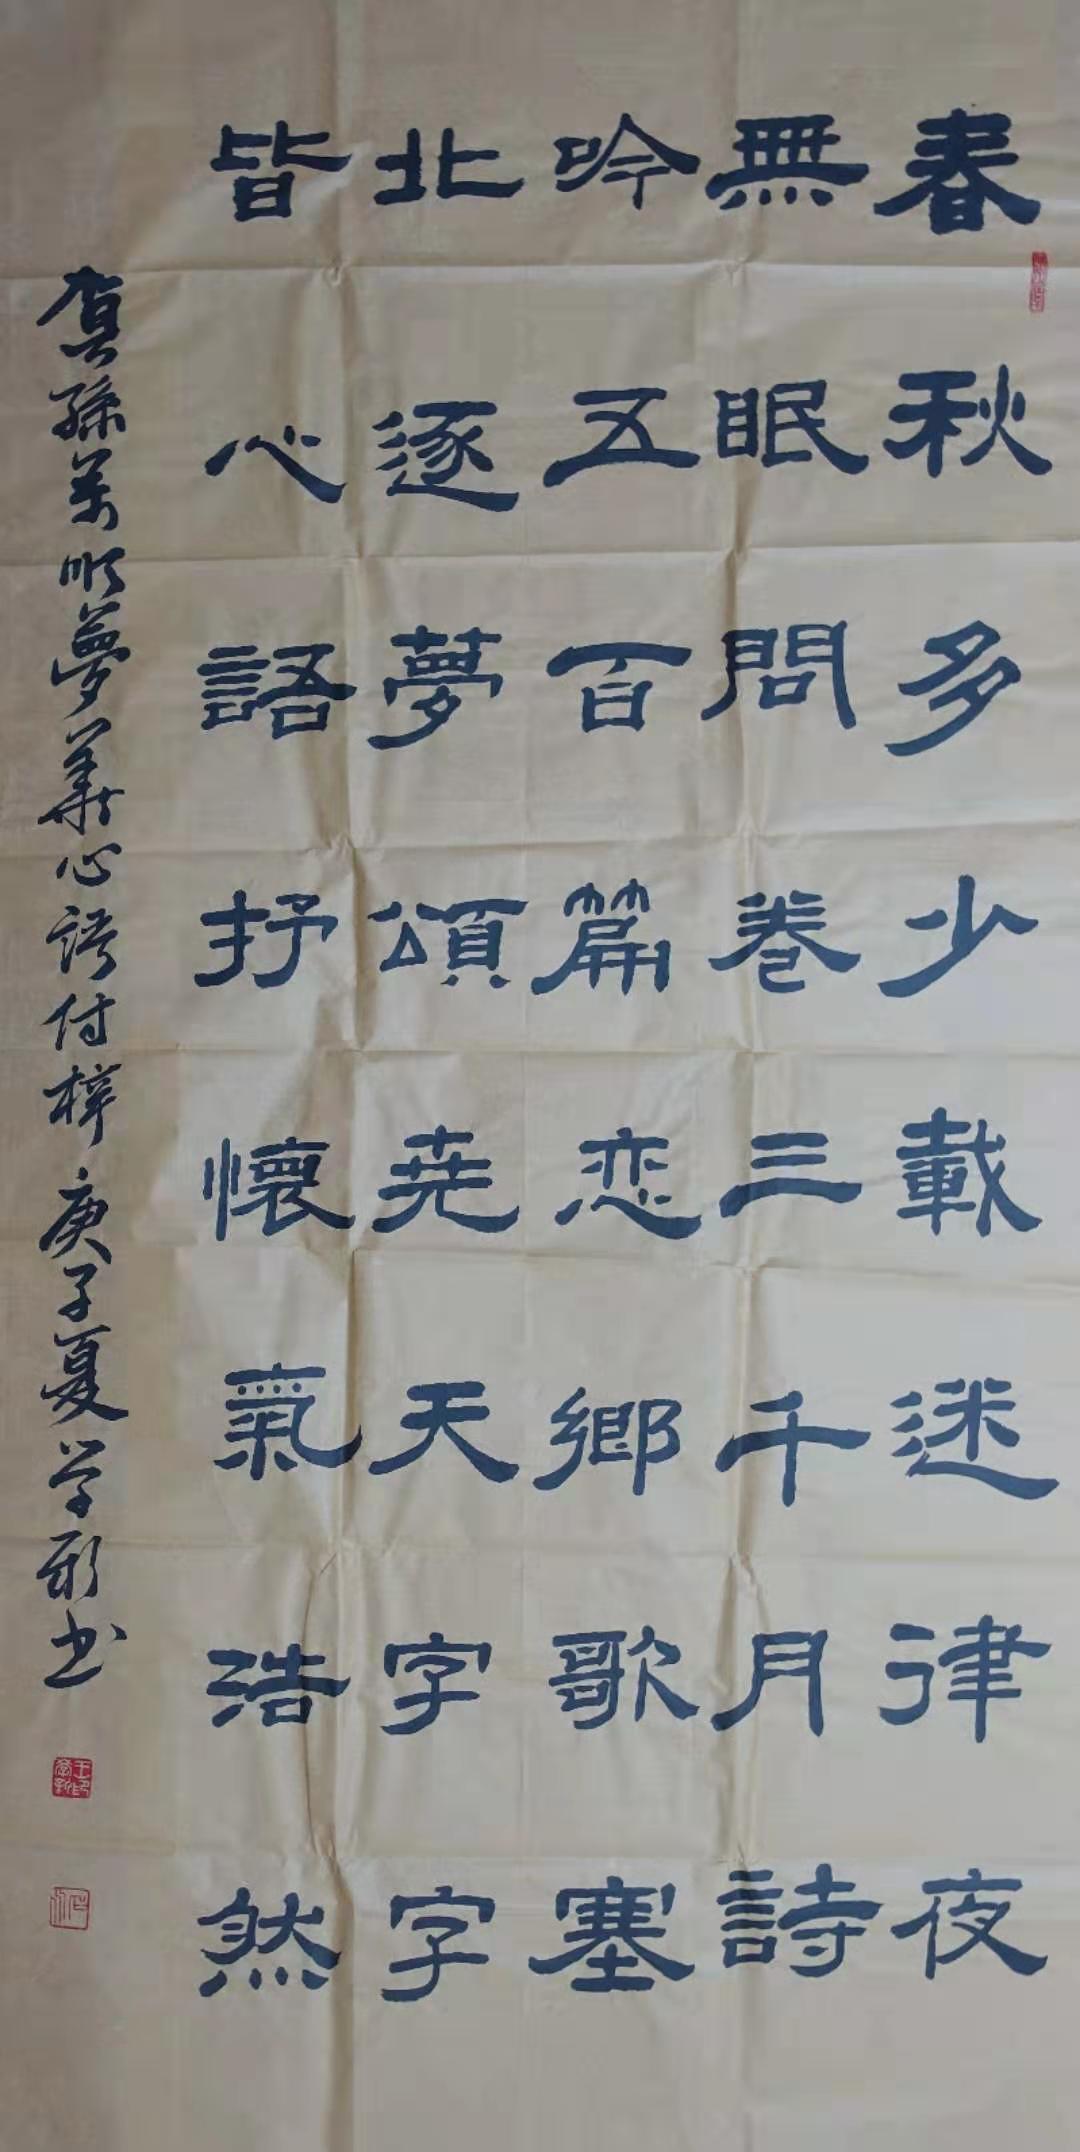 春秋多少載迷律夜
無眠問卷三千月詩
吟五百篇恋鄉歌塞
北逐夢頌尭天字字
皆心語抒懷氣浩然
賀孫萬順夢華心語付梓庚子夏学彬书